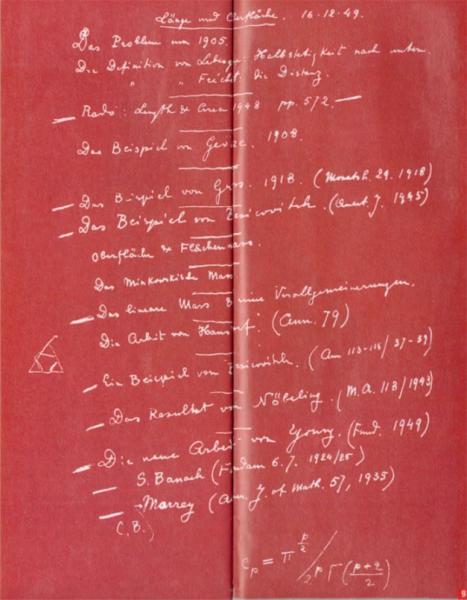 Länge und Oberfläche. 16-12-49.
Das Problem um 1905.
Die Definition von Lebesgue: Halbstetigkeit nach unten.
" " Fréchet: die Distanz.
Radó: Length & Area 1948 pp. 572.
Das Beispiel von Geöcze. 1908.
Das Beispiel von Gross. 1918. (Monatsh. 29. 1918)
Das Beispiel von Besicovitch. (Quart. J. 1945)
Oberfläche & Flächenmass.
Das Minkowskische Mass
Das lineare Mass & seine Verallgemeinerungen.
Die Arbeit von Hausdorff: (Ann. 79)
Ein Beispiel von Besicovitch. (Ann 113-115/37-39)
Das Resultat von Nöbeling. (M.A. 118/1943)
Die neue Arbeit von Young. (Fund. 1949)
S. Banach (Fundam 6. J. 1924/25)
(Am. J. of Math. 57, 1935)
(C.B.)
c_p = π^{p/2} / 2^p Γ((p+2)/2)